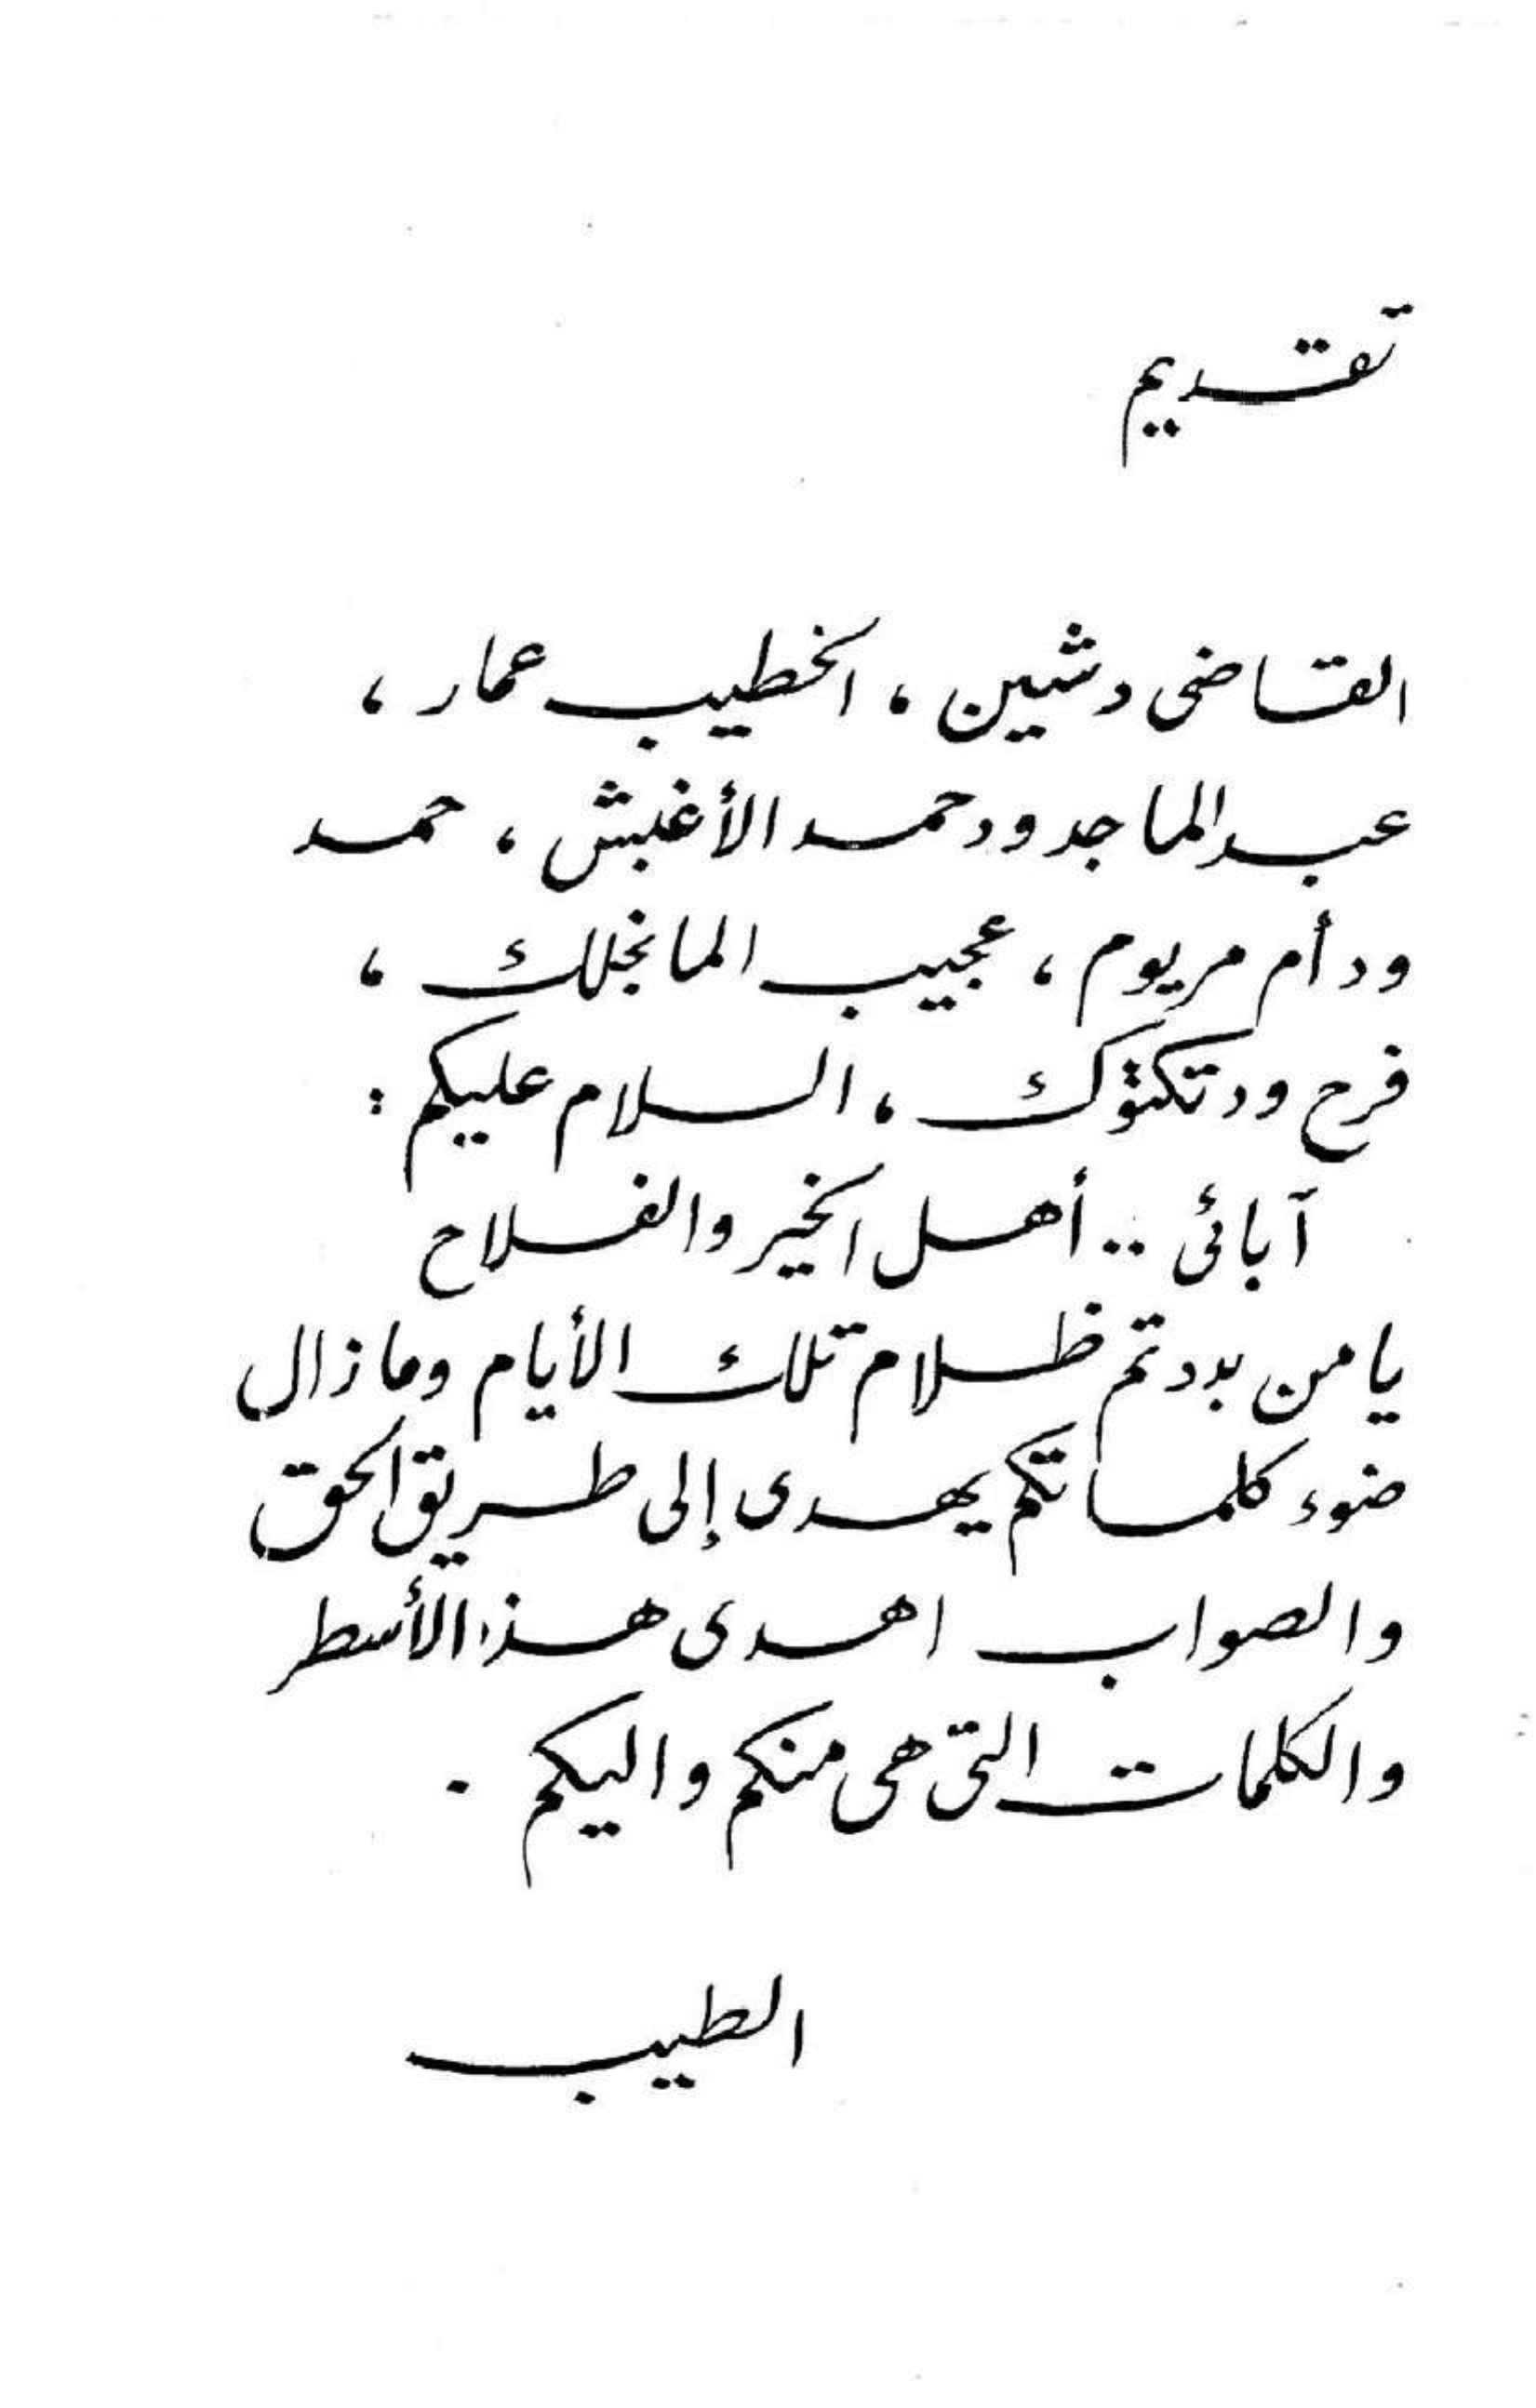 تقديم
القاضى دشين ، الخطيب عمار ،
عبد الماجد ود حمد الأغبش ، حمد
ود أم مريوم ، عجيب المانجلك ،
فرح ود تكتوك ، السلام عليكم :
آبائى .. أهل الخير والفلاح
يا من بددتم ظلام تلك الأيام وما زال
ضوء كلماتكم يهدى إلى طريق الحق
والصواب اهدى هذا الأسطر
والكلمات التى هى منكم واليكم .
الطيب